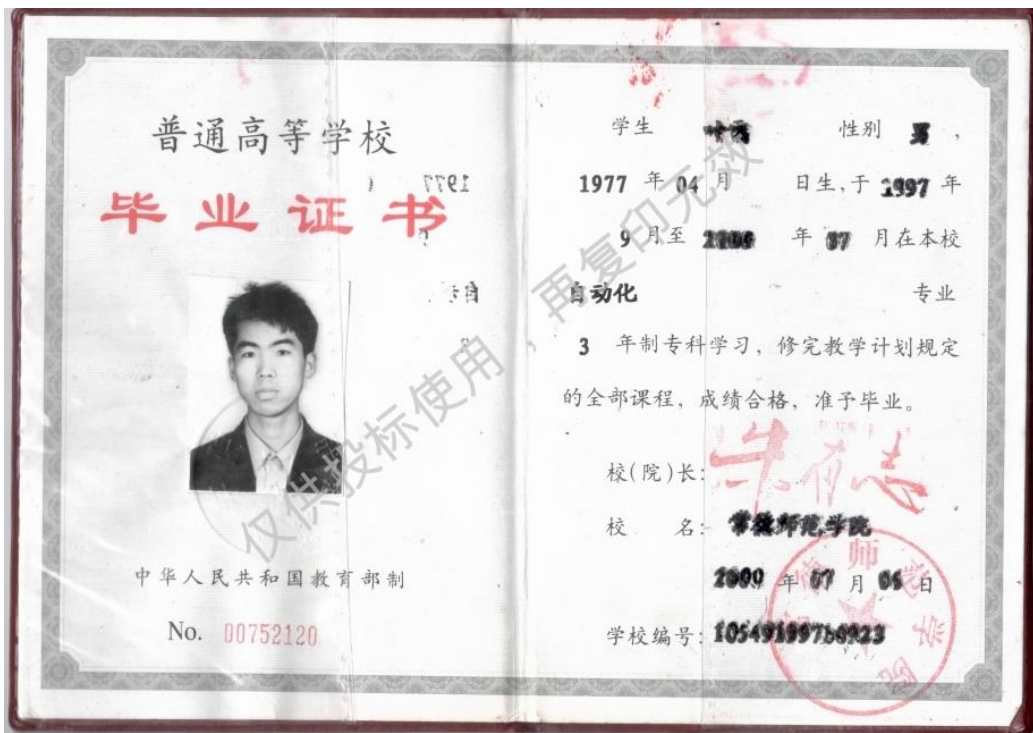 普通高等学校
毕业证书
中华人民共和国教育部制
No. 00752120
学生 性别 男，
1977 年 04 月 日生,于 1997 年
9 月至 2000 年 07 月在本校
自动化 专业
3 年制专科学习，修完教学计划规定
的全部课程，成绩合格，准予毕业。
校(院)长:
校 名: 常德师范学院
2000 年 07 月 06 日
学校编号:
仅供投标使用，再复印无效